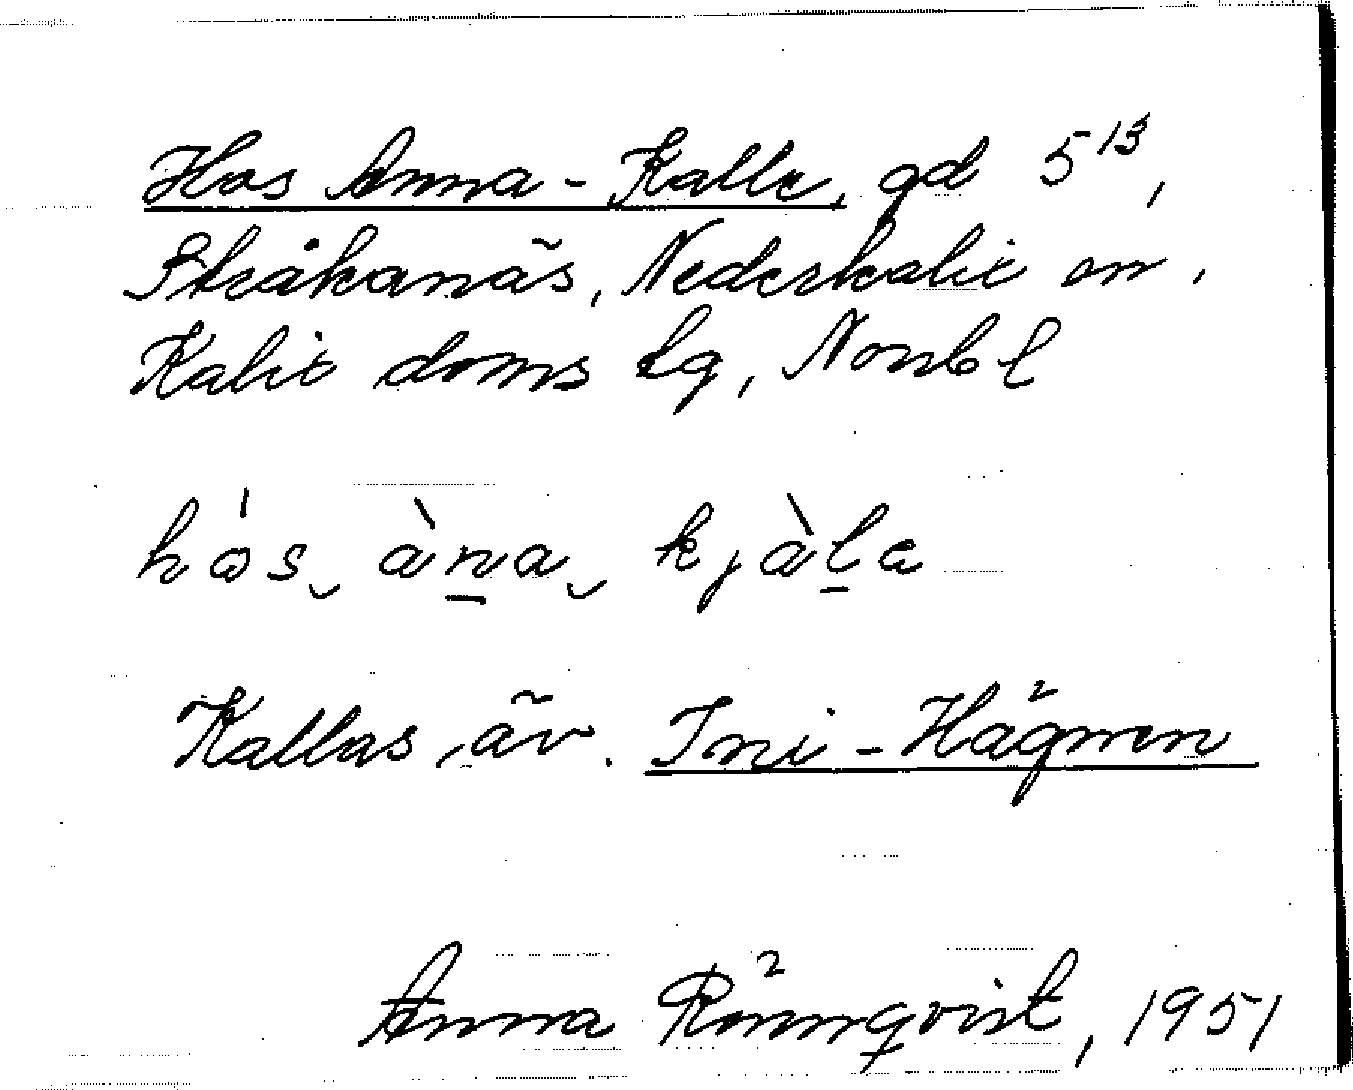 Hos Anna-Kalle, gd 5¹³,
Stråkanäs, Nederkalix sn,
Kalix doms lg, Norrb l
hós‿ àn̲a‿ kjàl̲a
Kallas äv. Ini-Hägnen
Anna Rönnqvist, 1951